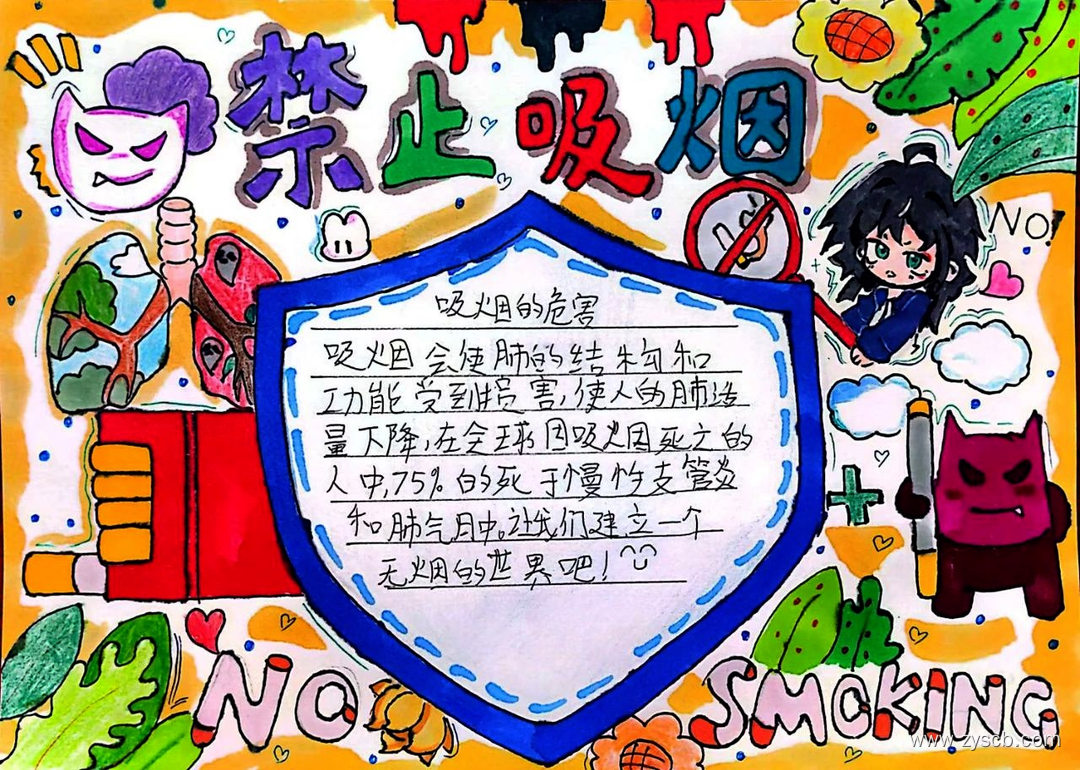 禁止吸烟
No!
吸烟的危害
吸烟会使肺的结构和
功能受到损害,使人的肺活
量下降,在全球因吸烟死亡的
人中,75%的死于慢性支管炎
和肺气月中。让我们建立一个
无烟的世界吧!
NO SMOKING
www.zyscb.com